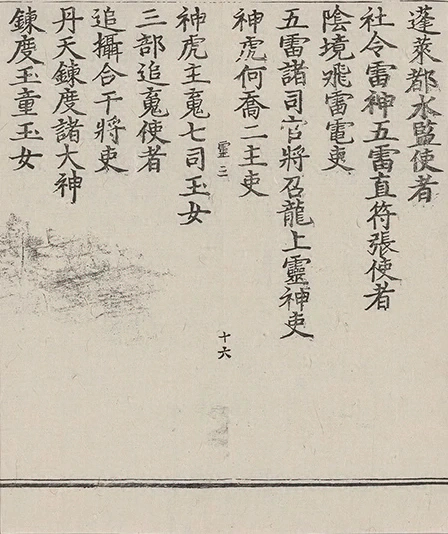 蓬萊都水監使者
社令雷神五雷直符張使者
陰境飛雷電吏
五雷諸司官將召龍上靈神吏
神虎何喬二主吏
靈三
十六
神虎主䰟七司玉女
三部追䰟使者
追攝合干將吏
丹天鍊度諸大神
鍊度玉童玉女